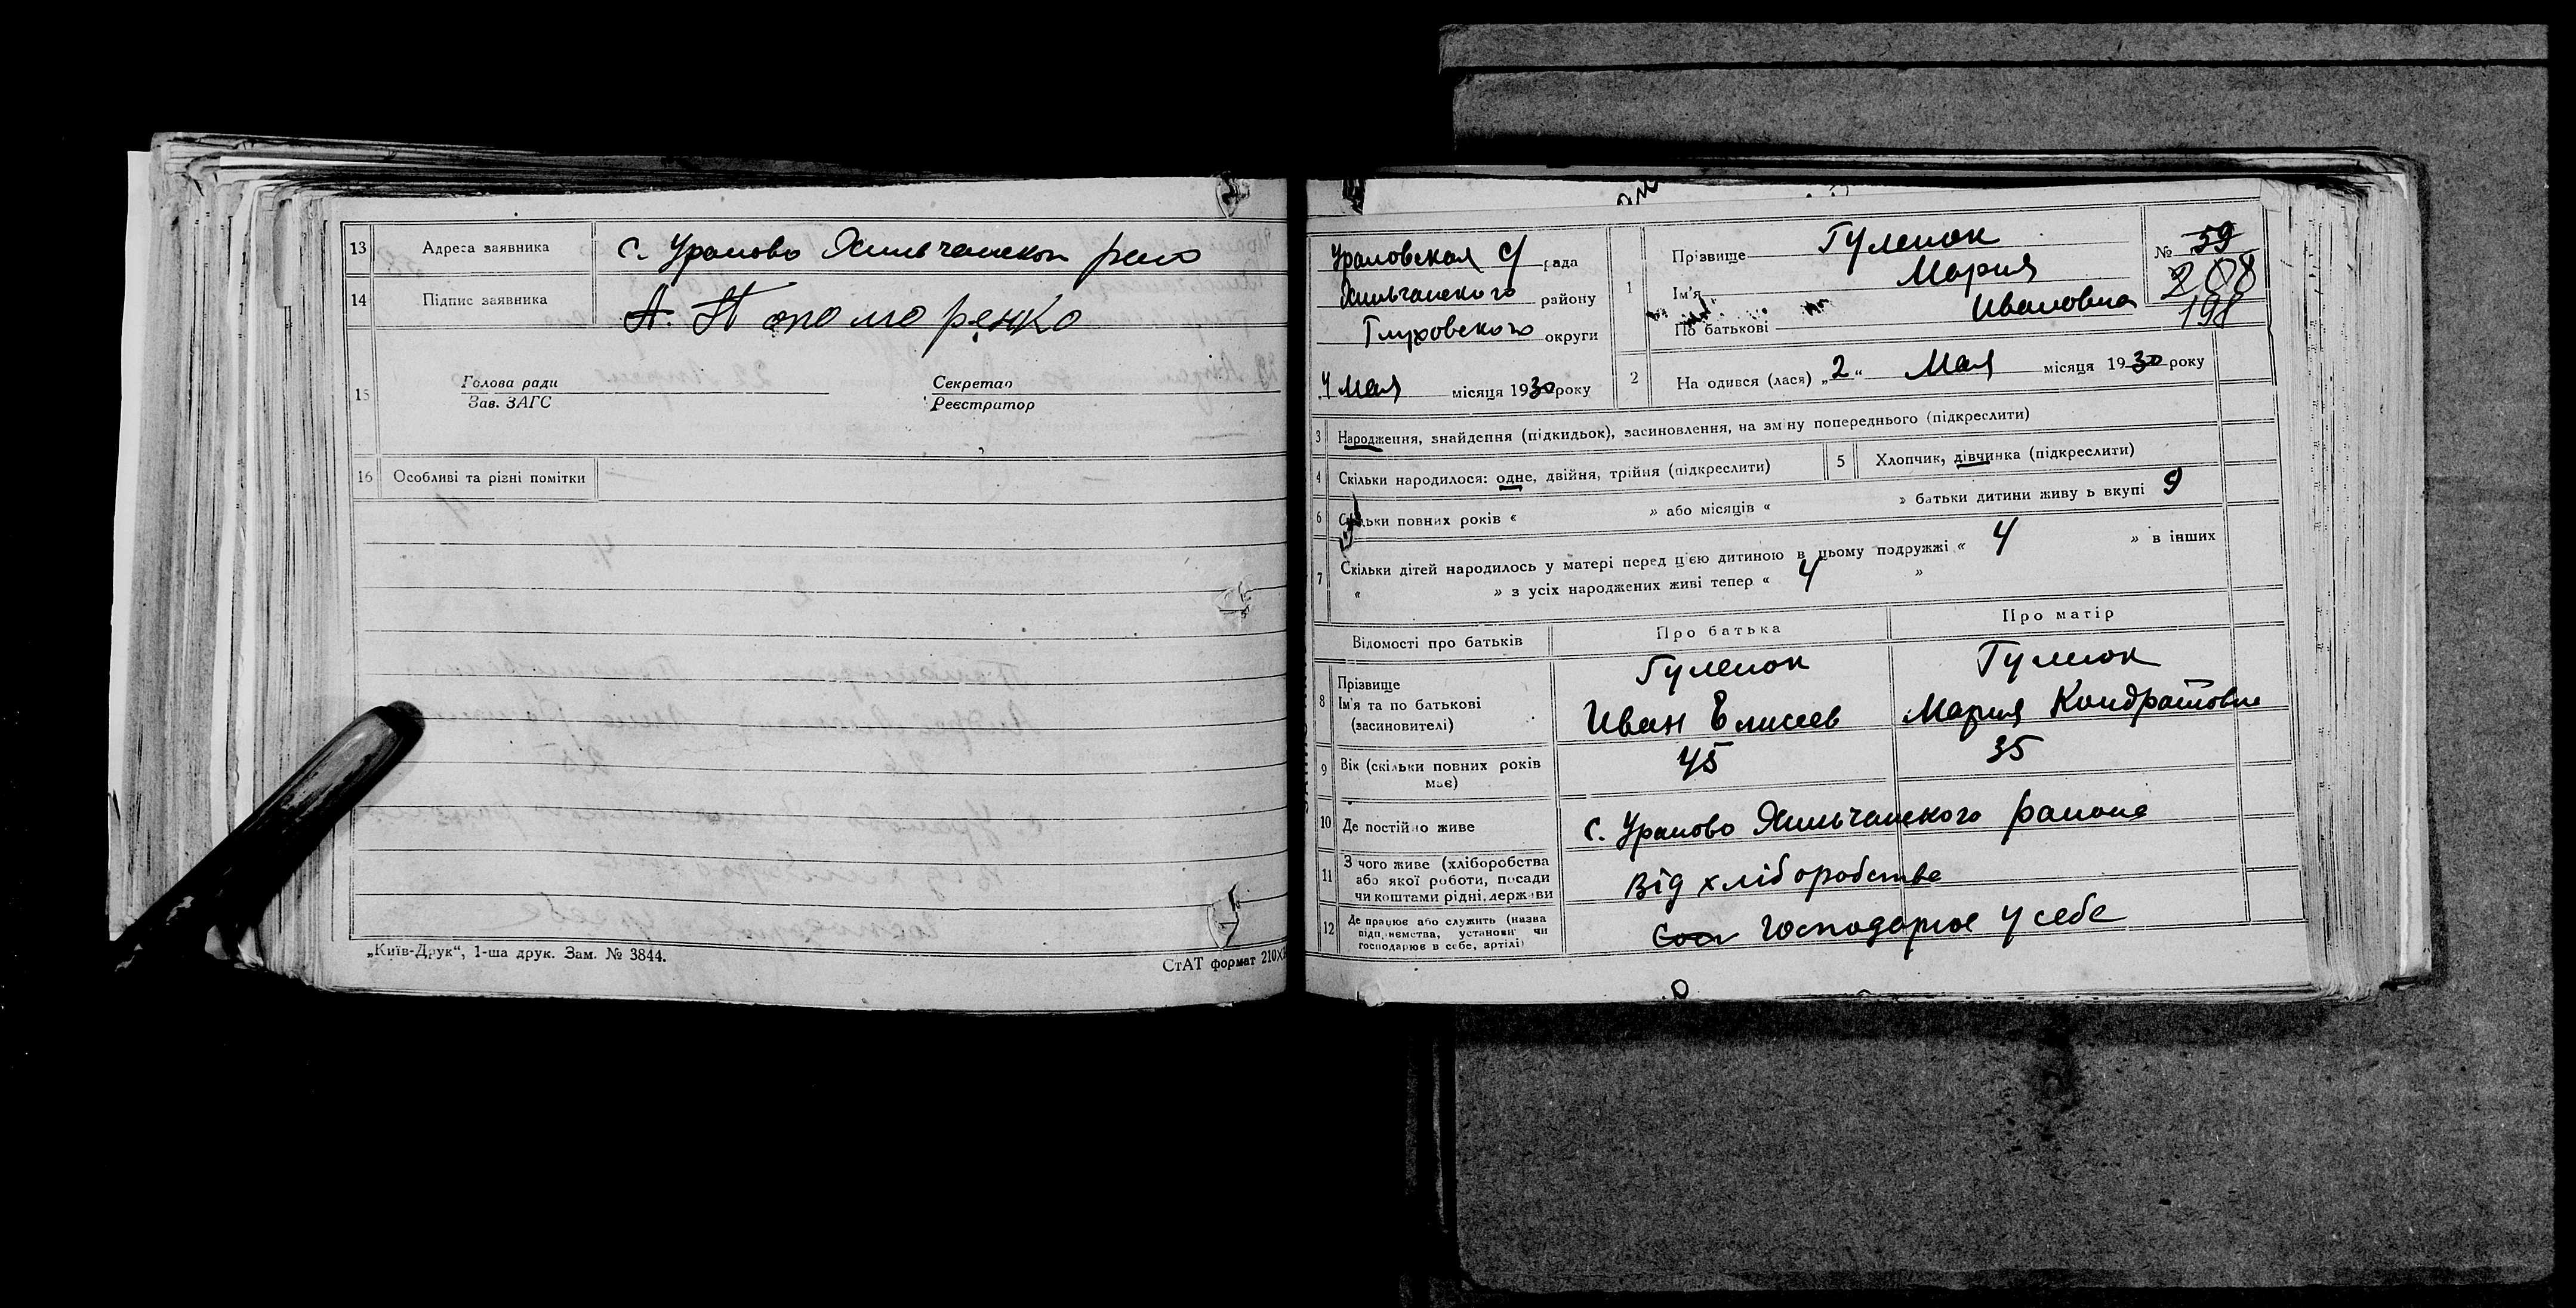 13 Адреса заявника с. Уралово Хильчанскои рно
14 Підпис заявника А. Поломаренко
15 Голова ради Секретар
Зав. ЗАГС Реєстратор
16 Особливі та різні помітки —
„Київ-Друк“, 1-ша друк. Зам. № 3844.
СтАТ формат 210Х
Ураловская с/ рада
Хильчанского району
Глуховского округи
4 мая місяця 1930 року
1 Прізвище Гуленок
Ім'я Мария
По батькові Ивановна
№ 59
208
198
2 На одився (лася) „2“ Мая місяця 1930 року
3 Народження, знайдення (підкидьок), засиновлення, на зміну попереднього (підкреслити)
4 Скільки народилося: одне, двійня, трійня (підкреслити) 5 Хлопчик, дівчинка (підкреслити)
6 Скільки повних років « » або місяців « » батьки дитини живу ь вкупі 9
7 Скільки дітей народилось у матері перед цією дитиною в цьому подружжі « 4 » в інших
« » з усіх народжених живі тепер « 4 »
Відомості про батьків Про батька Про матір
8 Прізвище Гуленок Гуленок
Ім'я та по батькові Иван Елисеев Мария Кондратовна
(засиновителі)
9 Вік (скільки повних років має) 45 35
10 Де постійно живе с. Уралово Хильчанского района
11 З чого живе (хліборобства
або якої роботи, посади Від хліборобства
чи коштами рідні, держави
12 Де працює або служить (назва
підприємства, установи чи господарює у себе
господарює в себе, артілі)